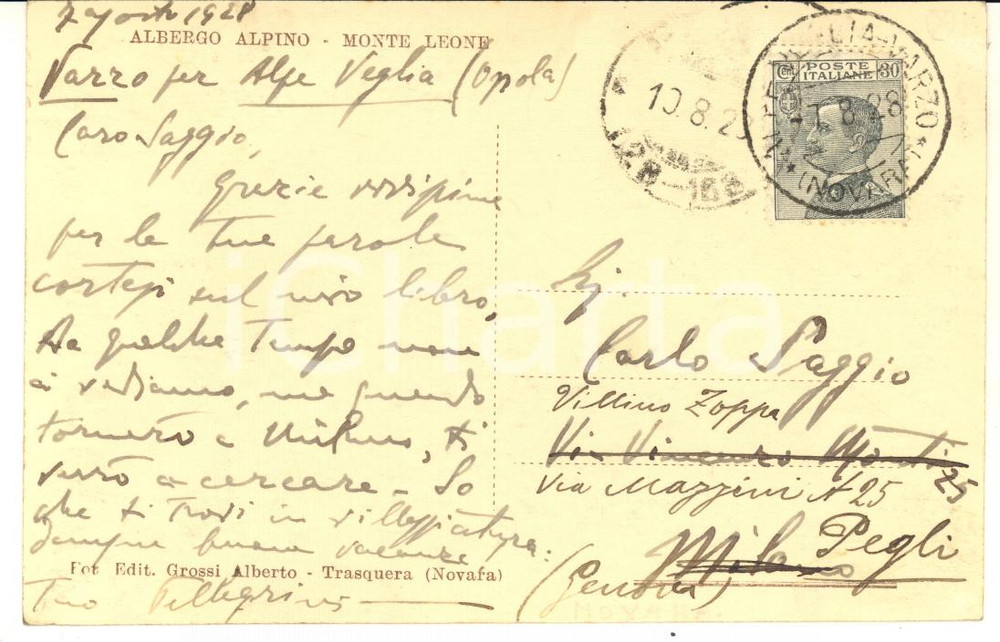 7 agosto 1928
ALBERGO ALPINO - MONTE LEONE
Varzo per Alpe Veglia (Ossola)
Caro Saggio,
Grazie vivissime
per le tue parole
cortesi sul mio libro.
Da qualche tempo non
ci vediamo, ma quando
tornerò a Milano, ti
verrò a cercare. So
che ti trovi in villeggiatura.
Sempre buone vacanze
Fot. Edit. Grossi Alberto - Trasquera (Novara)
Tuo Pellegrini
10.8.2
POSTE
ITALIANE
30
VARZO
8.28
(NOVARA)
Sig.
Carlo Saggio
Villino Zoppa
Via Vincenzo Monti 25
Via Mazzini N 25
Milano Pegli
(Genova)
iCharta